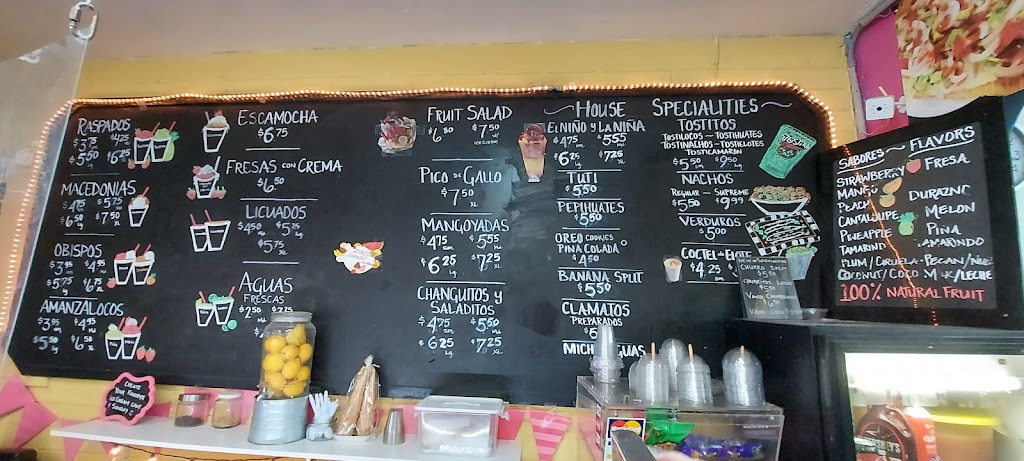 RASPADOS
$3.75 $4.25
$5.50 Lg $6.25 XL
MACEDONIAS
$4.75 $5.75
$6.50 Lg $7.50 XL
OBISPOS
$3.95 $4.95
$5.75 Lg $6.75 XL
AMANZALOCOS
$3.95 $4.95
$5.50 Lg $6.50 XL
ESCAMOCHA
$6.75
FRESAS CON CREMA
$6.50
LICUADOS
$4.50 $5.25 Lg
$5.75 XL
AGUAS
FRESCAS
FRUIT SALAD
$6.50 $7.50 w/ ice cream
PICO DE GALLO
$7.50 XL
MANGOYADAS
$4.75 sm $5.55 Med
$6.25 Lg $7.25 XL
CHANGUITOS Y
SALADITOS
$4.75 sm $5.50 Med
$6.25 Lg $7.25 XL
HOUSE SPECIALITIES
EL NIÑO Y LA NIÑA
$4.75 sm $5.55 Med
$6.25 Lg $7.25 XL
TUTI
$5.50
PEPIHUATES
$5.50
OREO COOKIES
PINA COLADA
$4.50
BANANA SPLIT
$5.50
CLAMATOS
PREPARADOS
MICH
TOSTITOS
TOSTILOCOS - TOSTIHUATES
TOSTINACHOS - TOSTIELOTES
TOSTICAMARON
$5.50 sm $9.50 Lg
NACHOS
REGULAR - SUPREME
$5.50 $9.99
VERDUROS
$5.00
COCTEL-ELOTE
$4.25 sm
CHURRO SPLIT
SABORES ~ FLAVORS
STRAWBERRY FRESA
MANGO
PEACH DURAZNO
CANTALOUPE MELON
PINEAPPLE PINA
TAMARIND TAMARINDO
PLUM/CIRUELA-PECAN/NUEZ
COCONUT/COCO MILK/LECHE
100% NATURAL FRUIT
CREATE
YOUR FAVORITE
ICE CREAM
SUNDAY